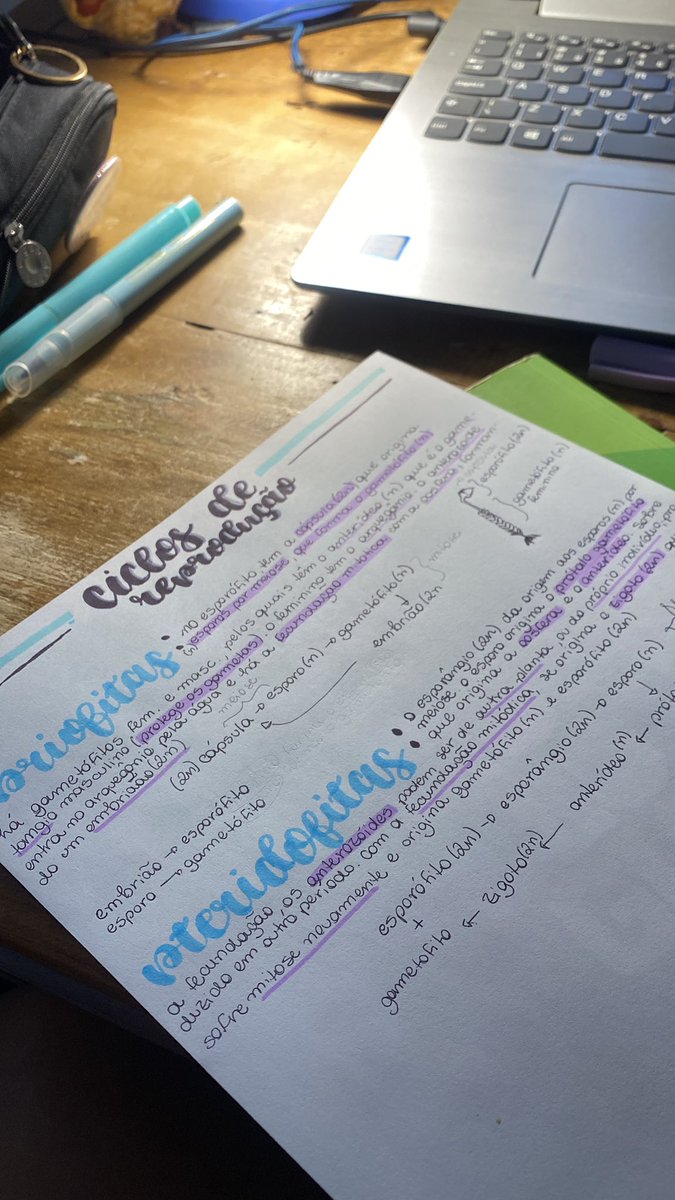 ciclos de
reprodução
briofitas:
no esporófito têm a cápsula (2n) que origina
(n) esporos por meiose, que forma o gametófito (n)
há gametófitos fem. e masc., pelos quais têm o anterídeo (n) que é o game-
tângio masculino (protege os gametas). o feminino tem o arquegônio. o anterozoide
entra no arquegônio pela água e há a fecundação mitótica com a oosfera, forman-
do um embrião (2n)
meiose
(2n) cápsula → esporo (n) → gametófito (n)
embrião (2n
mitose
embrião → esporófito
esporo → gametófito
cápsula
esporófito (2n)
gametófito (n)
feminino
pteridofitas:
o esporângio (2n) da origem aos esporos (n) por
meiose. o esporo origina o protalo gametófito
que origina a oosfera e o anterídeo. sobre
a fecundação, os anterozóides podem ser de outra planta ou do próprio indivíduo, pro
duzido em outro período. com a fecundação mitótica, se origina o zigoto (2n) que
sofre mitose novamente e origina gametófito (n) e esporófito (2n)
esporófito (2n) → esporângio (2n) → esporo (n) →
+
gametófito ← zigoto (2n) ← anterídeo (n) ← protal